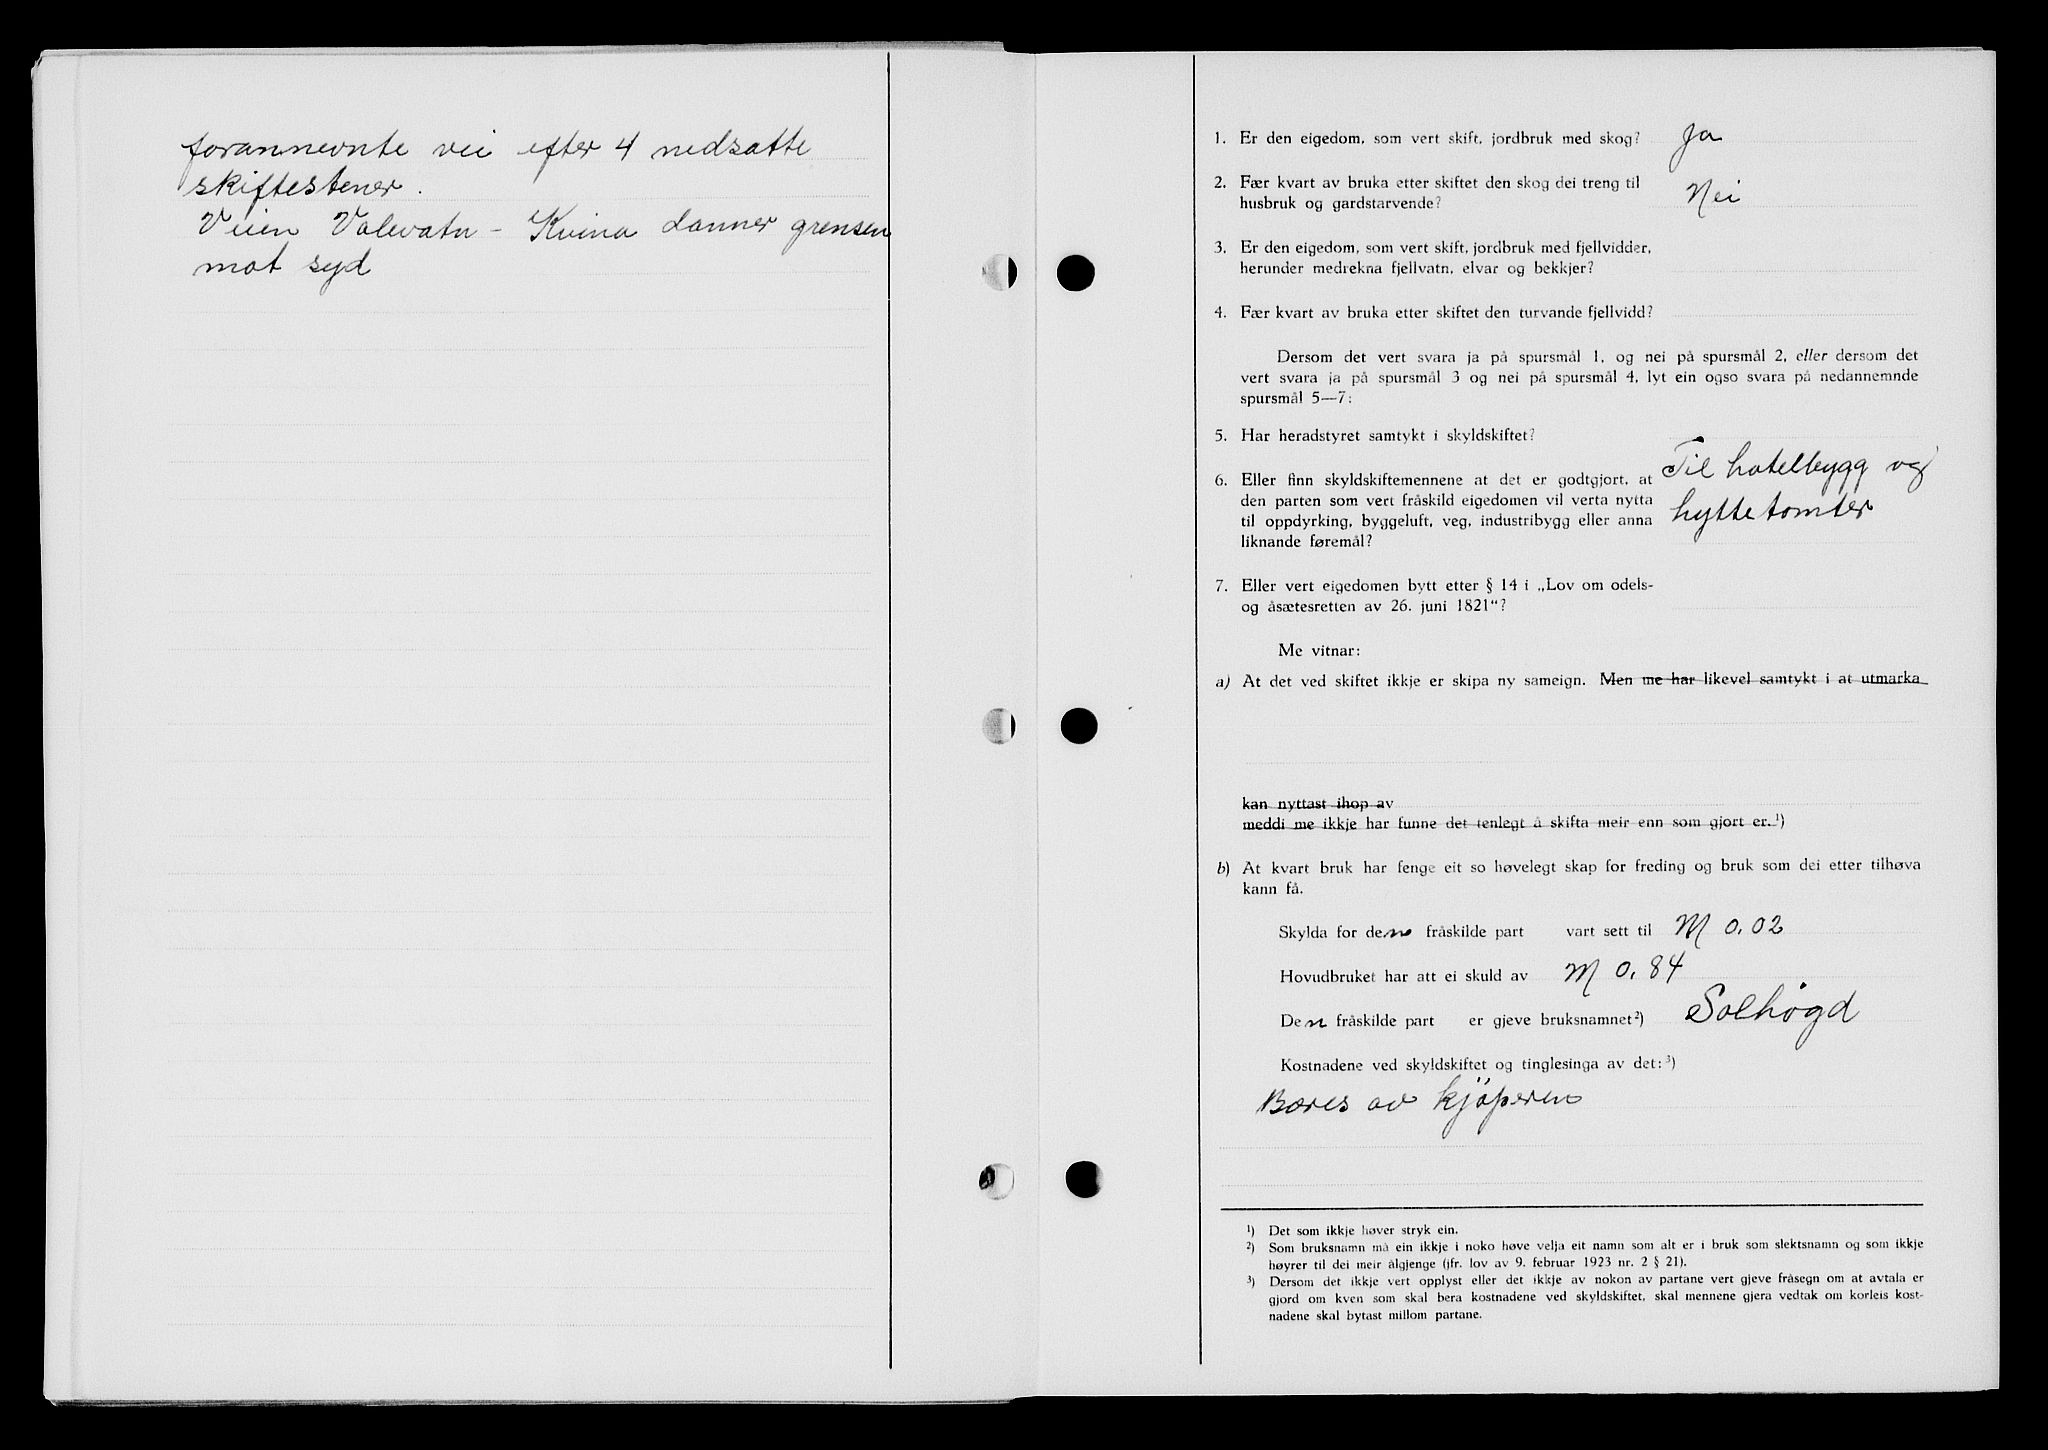 forannevnte vei efter 4 nedsatte
skiftestener.
Veien Valevatn - Kvina danner grensen
mot syd
1. Er den eigedom, som vert skift, jordbruk med skog? Ja
2. Fær kvart av bruka etter skiftet den skog dei treng til
husbruk og gardstarvende? Nei
3. Er den eigedom, som vert skift, jordbruk med fjellvidder,
herunder medrekna fjellvatn, elvar og bekkjer?
4. Fær kvart av bruka etter skiftet den turvande fjellvidd?
Dersom det vert svara ja på spursmål 1, og nei på spursmål 2, eller dersom det
vert svara ja på spursmål 3 og nei på spursmål 4, lyt ein ogso svara på nedannemnde
spursmål 5—7:
5. Har heradstyret samtykt i skyldskiftet?
6. Eller finn skyldskiftemennene at det er godtgjort, at
den parten som vert fråskild eigedomen vil verta nytta
til oppdyrking, byggeluft, veg, industribygg eller anna
liknande føremål?
Til hotelbygg og
hyttetomter
7. Eller vert eigedomen bytt etter § 14 i „Lov om odels-
og åsætesretten av 26. juni 1821“?
Me vitnar:
a) At det ved skiftet ikkje er skipa ny sameign. Men me har likevel samtykt i at utmarka
kan nyttast ihop av
meddi me ikkje har funne det tenlegt å skifta meir enn som gjort er. ¹)
b) At kvart bruk har fenge eit so høvelegt skap for freding og bruk som dei etter tilhøva
kann få.
Skylda for den fråskilde part vart sett til M 0.02
Hovudbruket har att ei skuld av M 0.84
Den fråskilde part er gjeve bruksnamnet ²) Solhøgd
Kostnadene ved skyldskiftet og tinglesinga av det: ³)
Bæres av kjøperen
¹) Det som ikkje høver stryk ein.
²) Som bruksnamn må ein ikkje i noko høve velja eit namn som alt er i bruk som slektsnamn og som ikkje
høyrer til dei meir ålgjenge (jfr. lov av 9. februar 1923 nr. 2 § 21).
³) Dersom det ikkje vert opplyst eller det ikkje av nokon av partane vert gjeve fråsegn om at avtala er
gjord om kven som skal bera kostnadene ved skyldskiftet, skal mennene gjera vedtak om korleis kost-
nadene skal bytast millom partane.